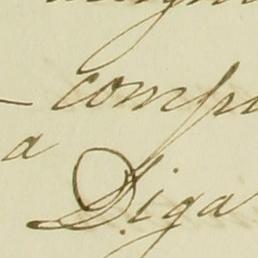 comp
a
Diga